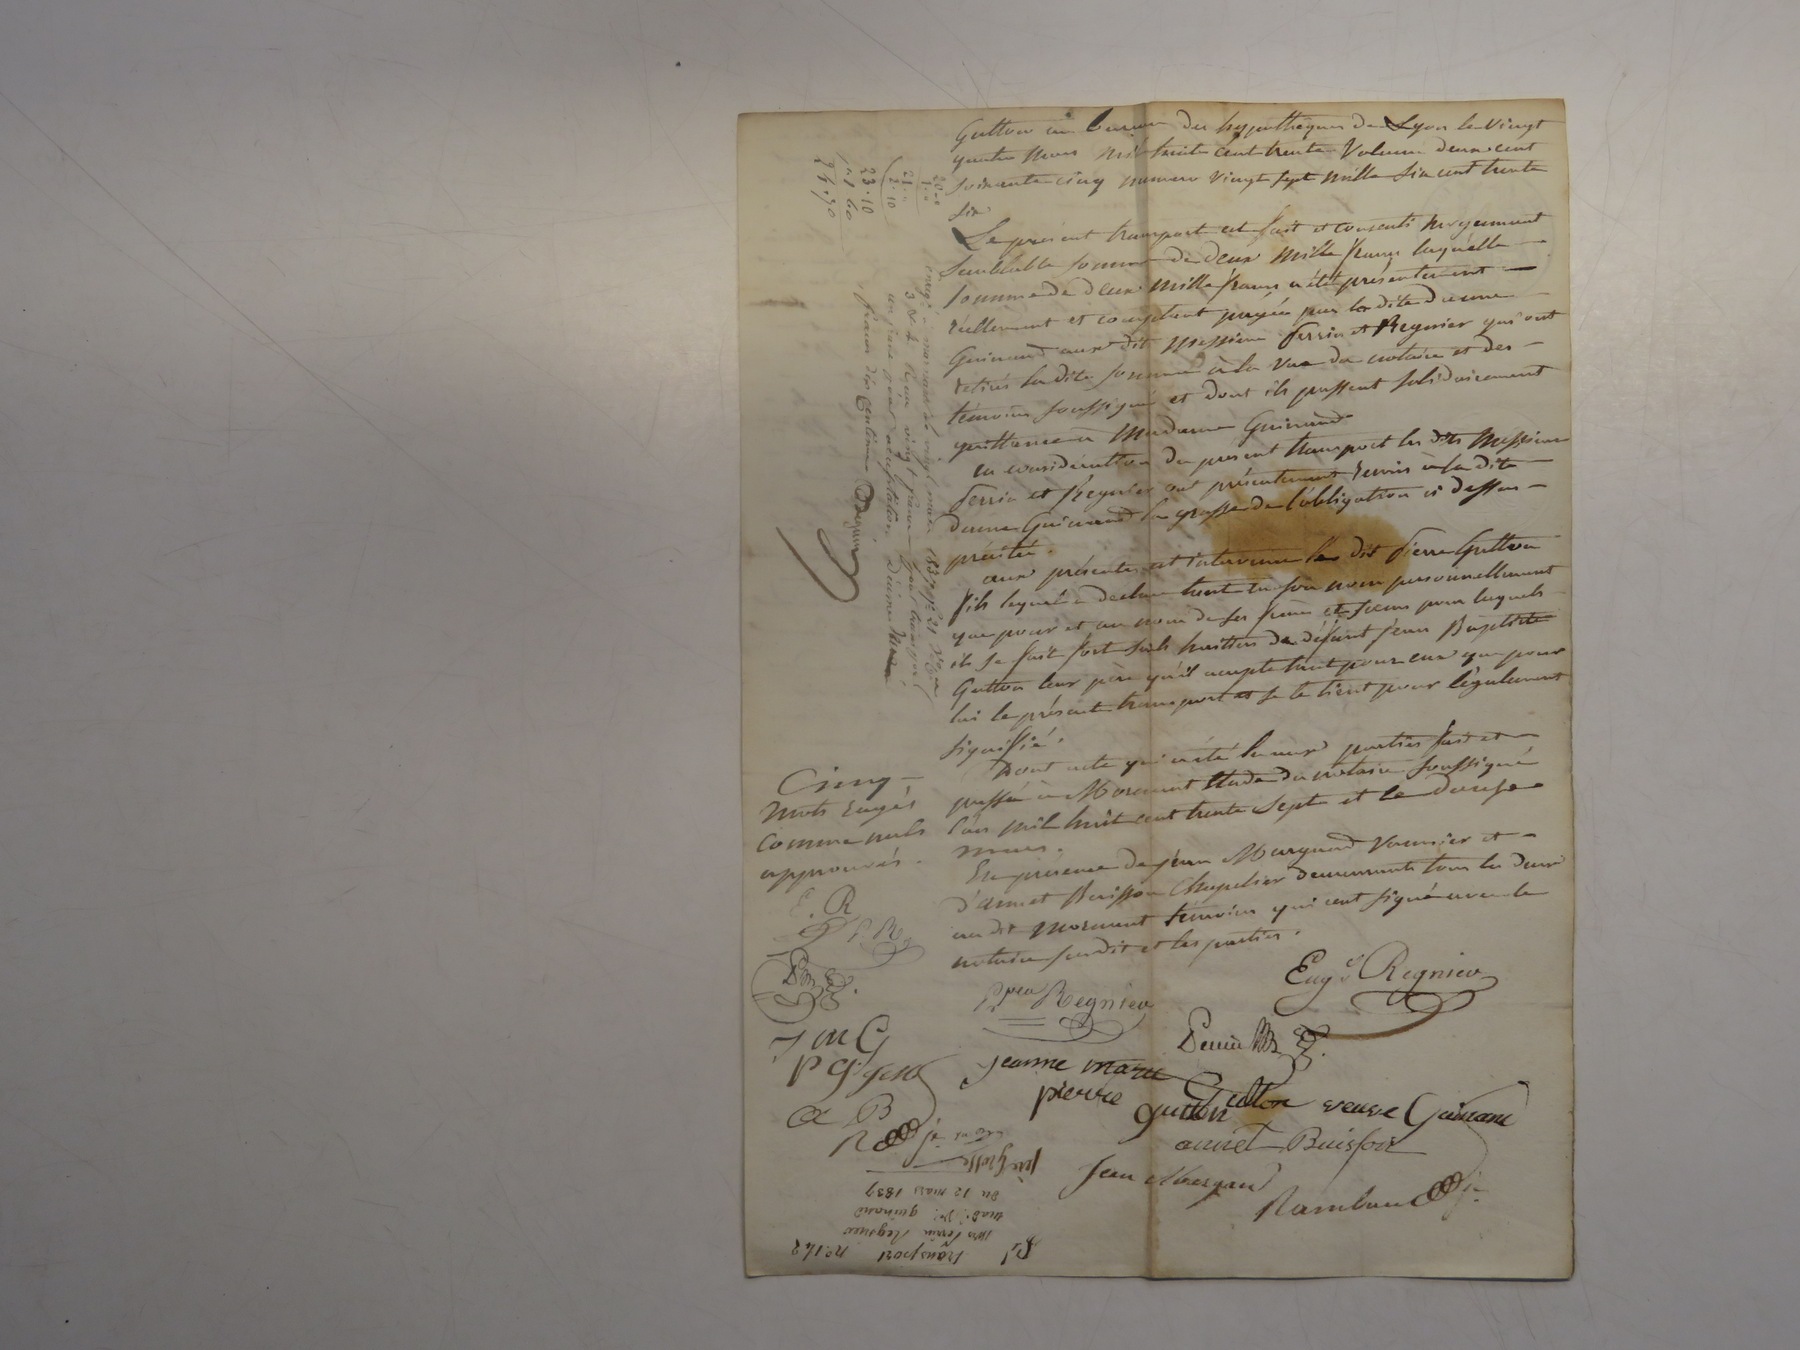 Gutton au bureau des hypothèques de Lyon le vingt
quatre mars mil huit cent trente Volume deux cent
soixante cinq numero vingt sept mille six cent trente
six
Le présent transport est fait et consenti moyennant
semblable somme de deux mille francs laquelle
somme de deux mille francs a été présentement
réellement et comptant payée par la dite dame
Guinand aux dit Messieurs Perrin et Regnier qui ont
retirés la dite somme à la vue du notaire et des
témoins soussignés et dont ils passent solidairement
quittance à Madame Guinand
en considération du present transport les dits Messieurs
Perrin et Regnier ont présentement remis à la dite
dame Guinand la grosse de l'obligation ci dessus
précitée.
aux présentes est intervenu le dit Pierre Gutton
fils lequel a déclaré tant en son nom personnellement
que pour et au nom de ses frères et sœurs pour lesquels
il se fait fort seuls héritiers de défunt Jean Baptiste
Gutton leur père qu'il accepte tant pour eux que pour
lui le présent transport et se le tient pour légalement
signifié.
Dont acte qui a été lu aux parties fait et
passé à Mornant Etude du notaire soussigné
l'an mil huit cent trente sept et le douze
mars.
En présence de Jean Margand vannier et
d'annet Buisson Chapelier demeurants tous les deux
au dit Mornant témoins qui ont signé avec le
notaire susdit et les parties.
Cinq
mots rayés
comme nuls
approuvés.
E. R
P. R
J m G
P G
a B
R
Eug Regnier
Regnier
Perrin
Jeanne marie Gutton veuve Guinand
pierre gutton
annet Buisson
Jean Margand
Rambau
20 "
1 "
21 "
2. 10
23. 10
1. 60
24. 70
mars 1837 f° 21
reçu vingt francs pour transport
un franc pour acceptation décime
francs dix centimes
transport n° 142
Mrs Perrin Regnier
Mad. Ve guinand
du 12 mars 1837
1ère Grosse